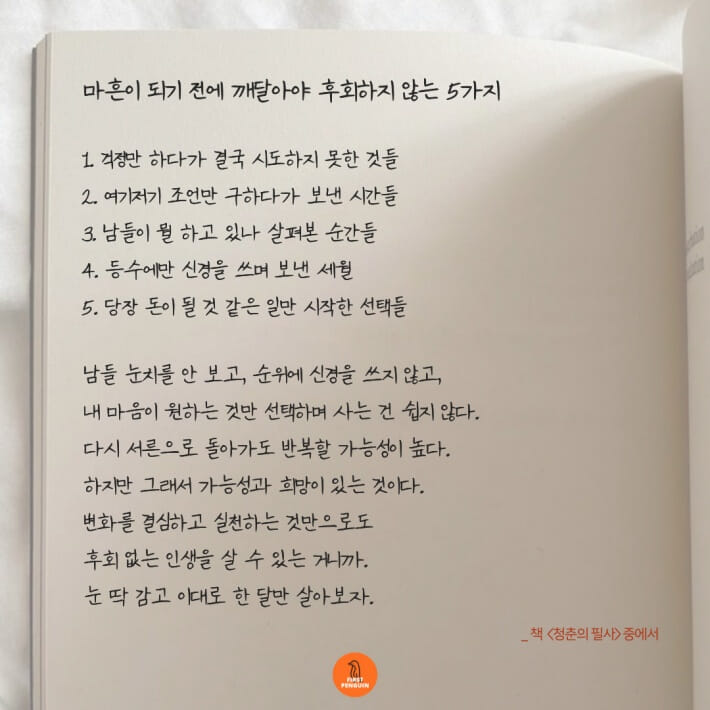 마흔이 되기 전에 깨달아야 후회하지 않는 5가지
1. 걱정만 하다가 결국 시도하지 못한 것들
2. 여기저기 조언만 구하다가 보낸 시간들
3. 남들이 뭘 하고 있나 살펴본 순간들
4. 등수에만 신경을 쓰며 보낸 세월
5. 당장 돈이 될 것 같은 일만 시작한 선택들
남들 눈치를 안 보고, 순위에 신경을 쓰지 않고,
내 마음이 원하는 것만 선택하며 사는 건 쉽지 않다.
다시 서른으로 돌아가도 반복할 가능성이 높다.
하지만 그래서 가능성과 희망이 있는 것이다.
변화를 결심하고 실천하는 것만으로도
후회 없는 인생을 살 수 있는 거니까.
눈 딱 감고 이대로 한 달만 살아보자.
_ 책 <청춘의 필사> 중에서
FIRST
PENGUIN